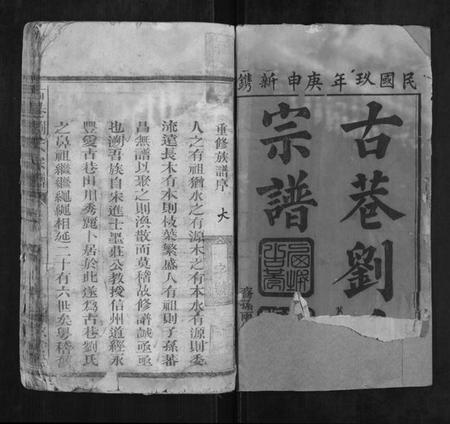 民國玖年庚申新鐫
古巷劉
宗譜
重修族譜序　大
人之有祖猶水之有源木之有本水有源則委
流遠長木有本則枝葉繁盛人有祖則子孫蕃
昌無譜以聚之則渙散而莫稽故修譜誠亟亟
也溯吾族自宋進士墨莊公教授信州道經永
豐愛古巷山川秀麗卜居於此遂為古巷劉氏
之鼻祖繼繼繩繩相延二十有六世矣粵稽